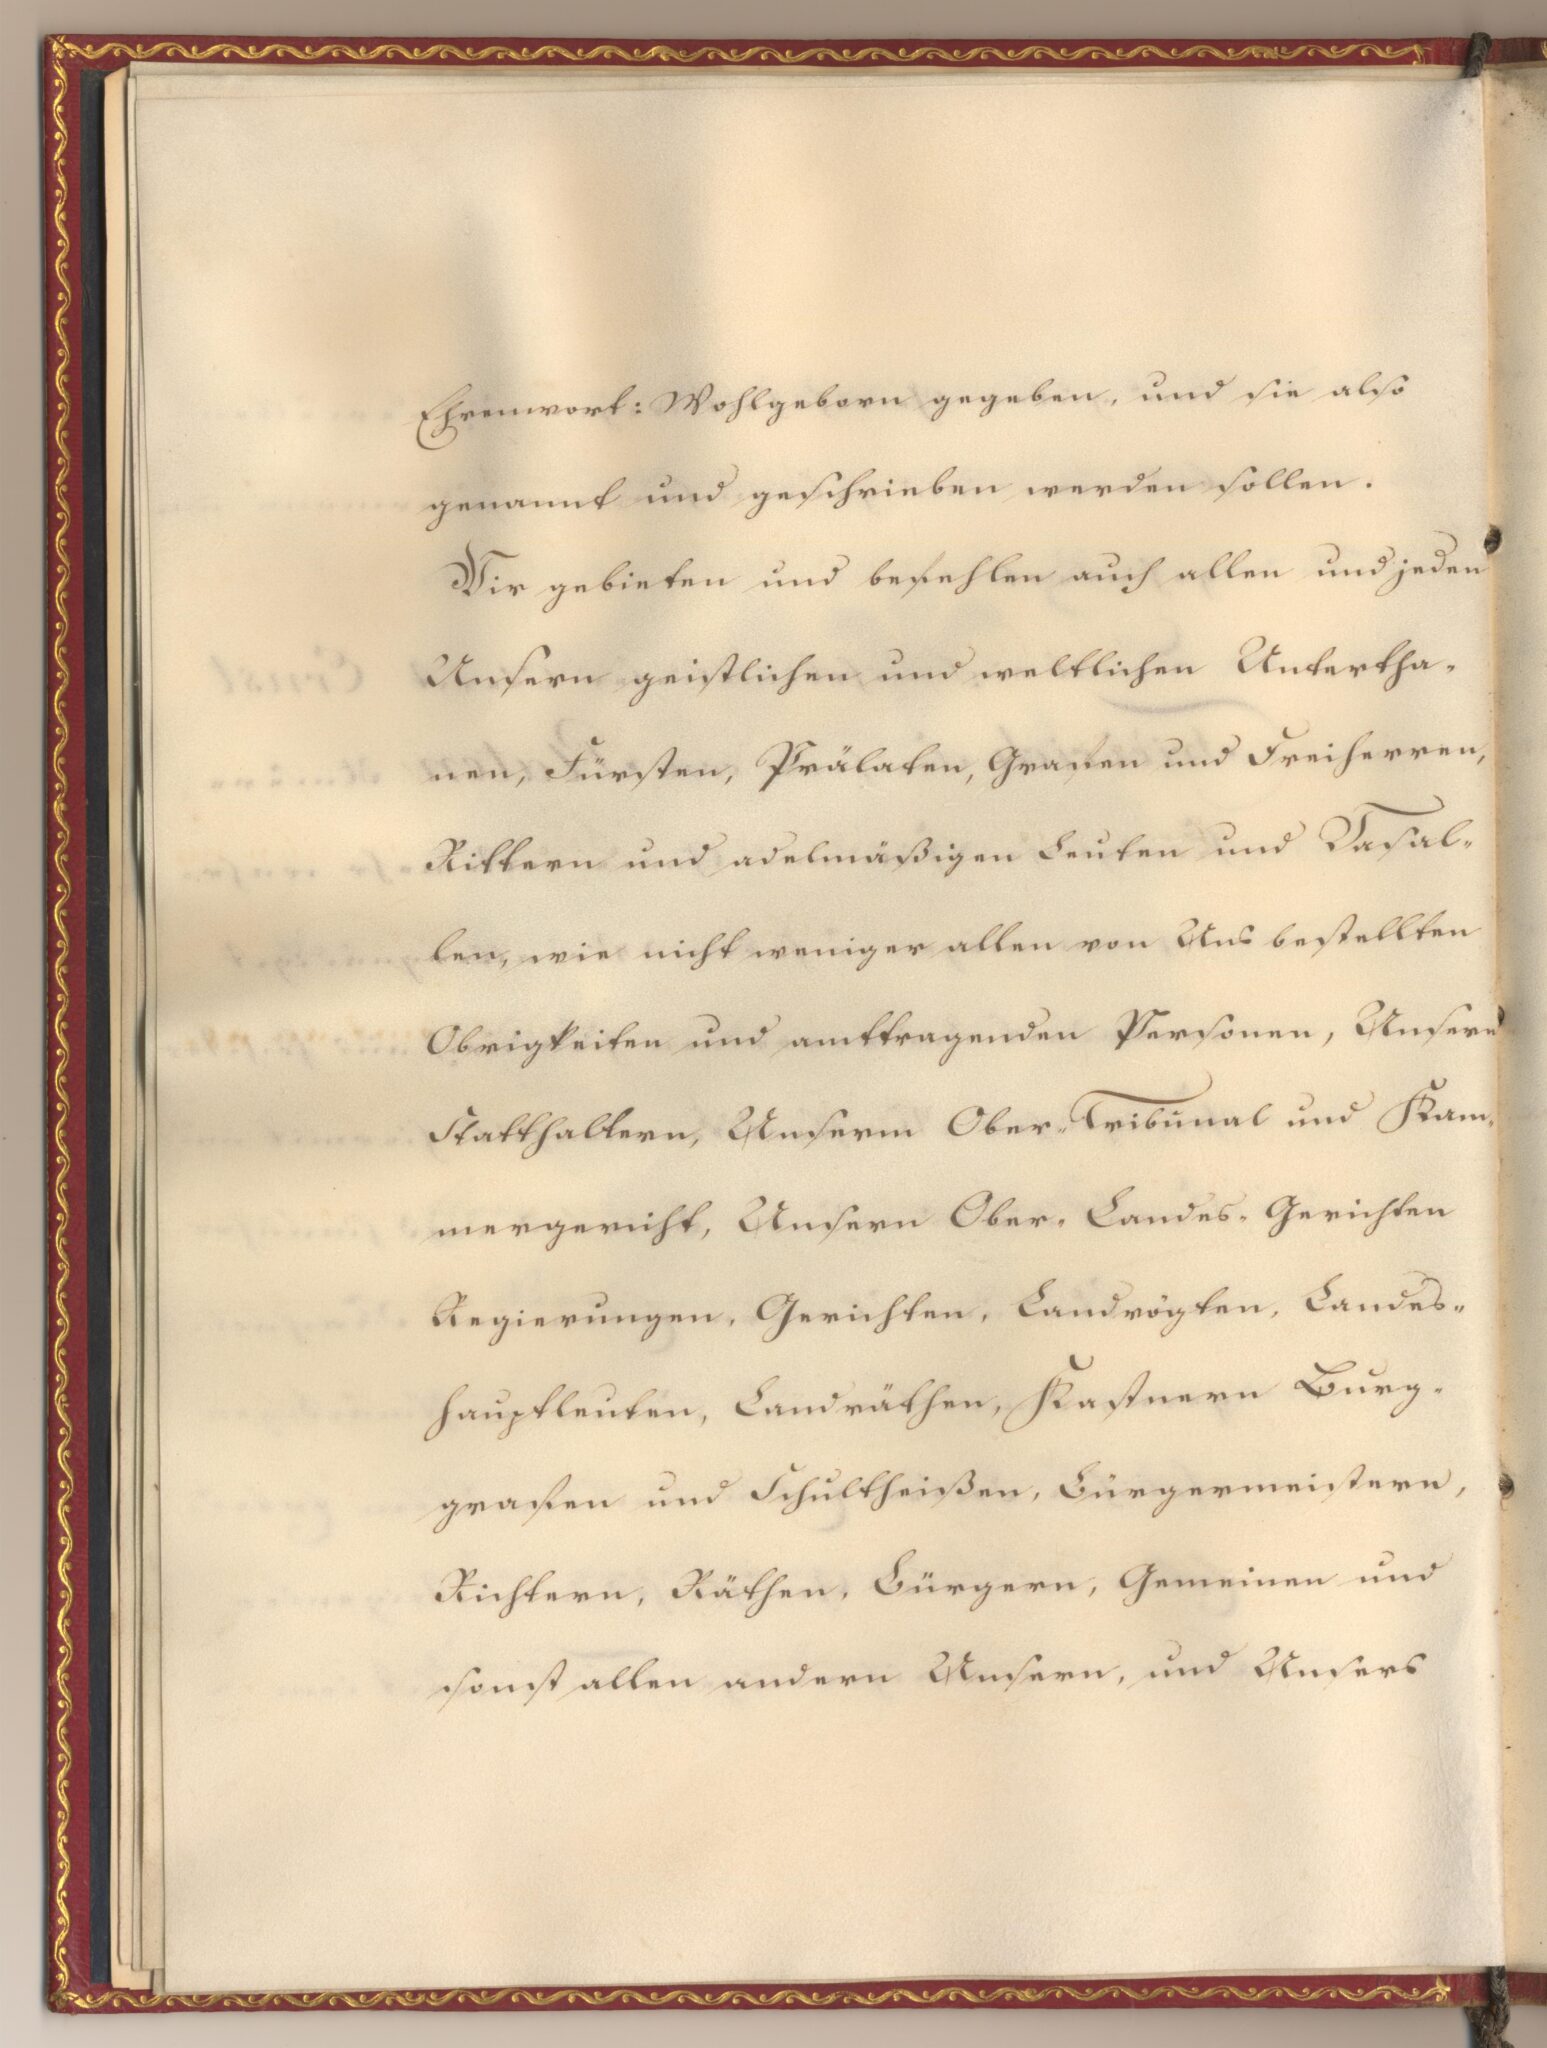 Ehrenwort: Wohlgeborn gegeben, und sie also
genannt und geschrieben werden sollen.
Wir gebieten und befehlen auch allen und jeden
Unsern geistlichen und weltlichen Untertha-
nen, Fürsten, Prälaten, Grafen und Freiherren,
Rittern und adelmäßigen Leuten und Vasal-
len, wie nicht weniger allen von Uns bestellten
Obrigkeiten und amttragenden Personen, Unsern
Statthaltern, Unserm Ober-Tribunal und Kam-
mergericht, Unsern Ober-Landes-Gerichten
Regierungen, Gerichten, Landvögten, Landes-
hauptleuten, Landräthen, Kastnern Burg-
grafen und Schultheißen, Bürgermeistern,
Richtern, Räthen, Bürgern, Gemeinen und
sonst allen andern Unsern, und Unsers